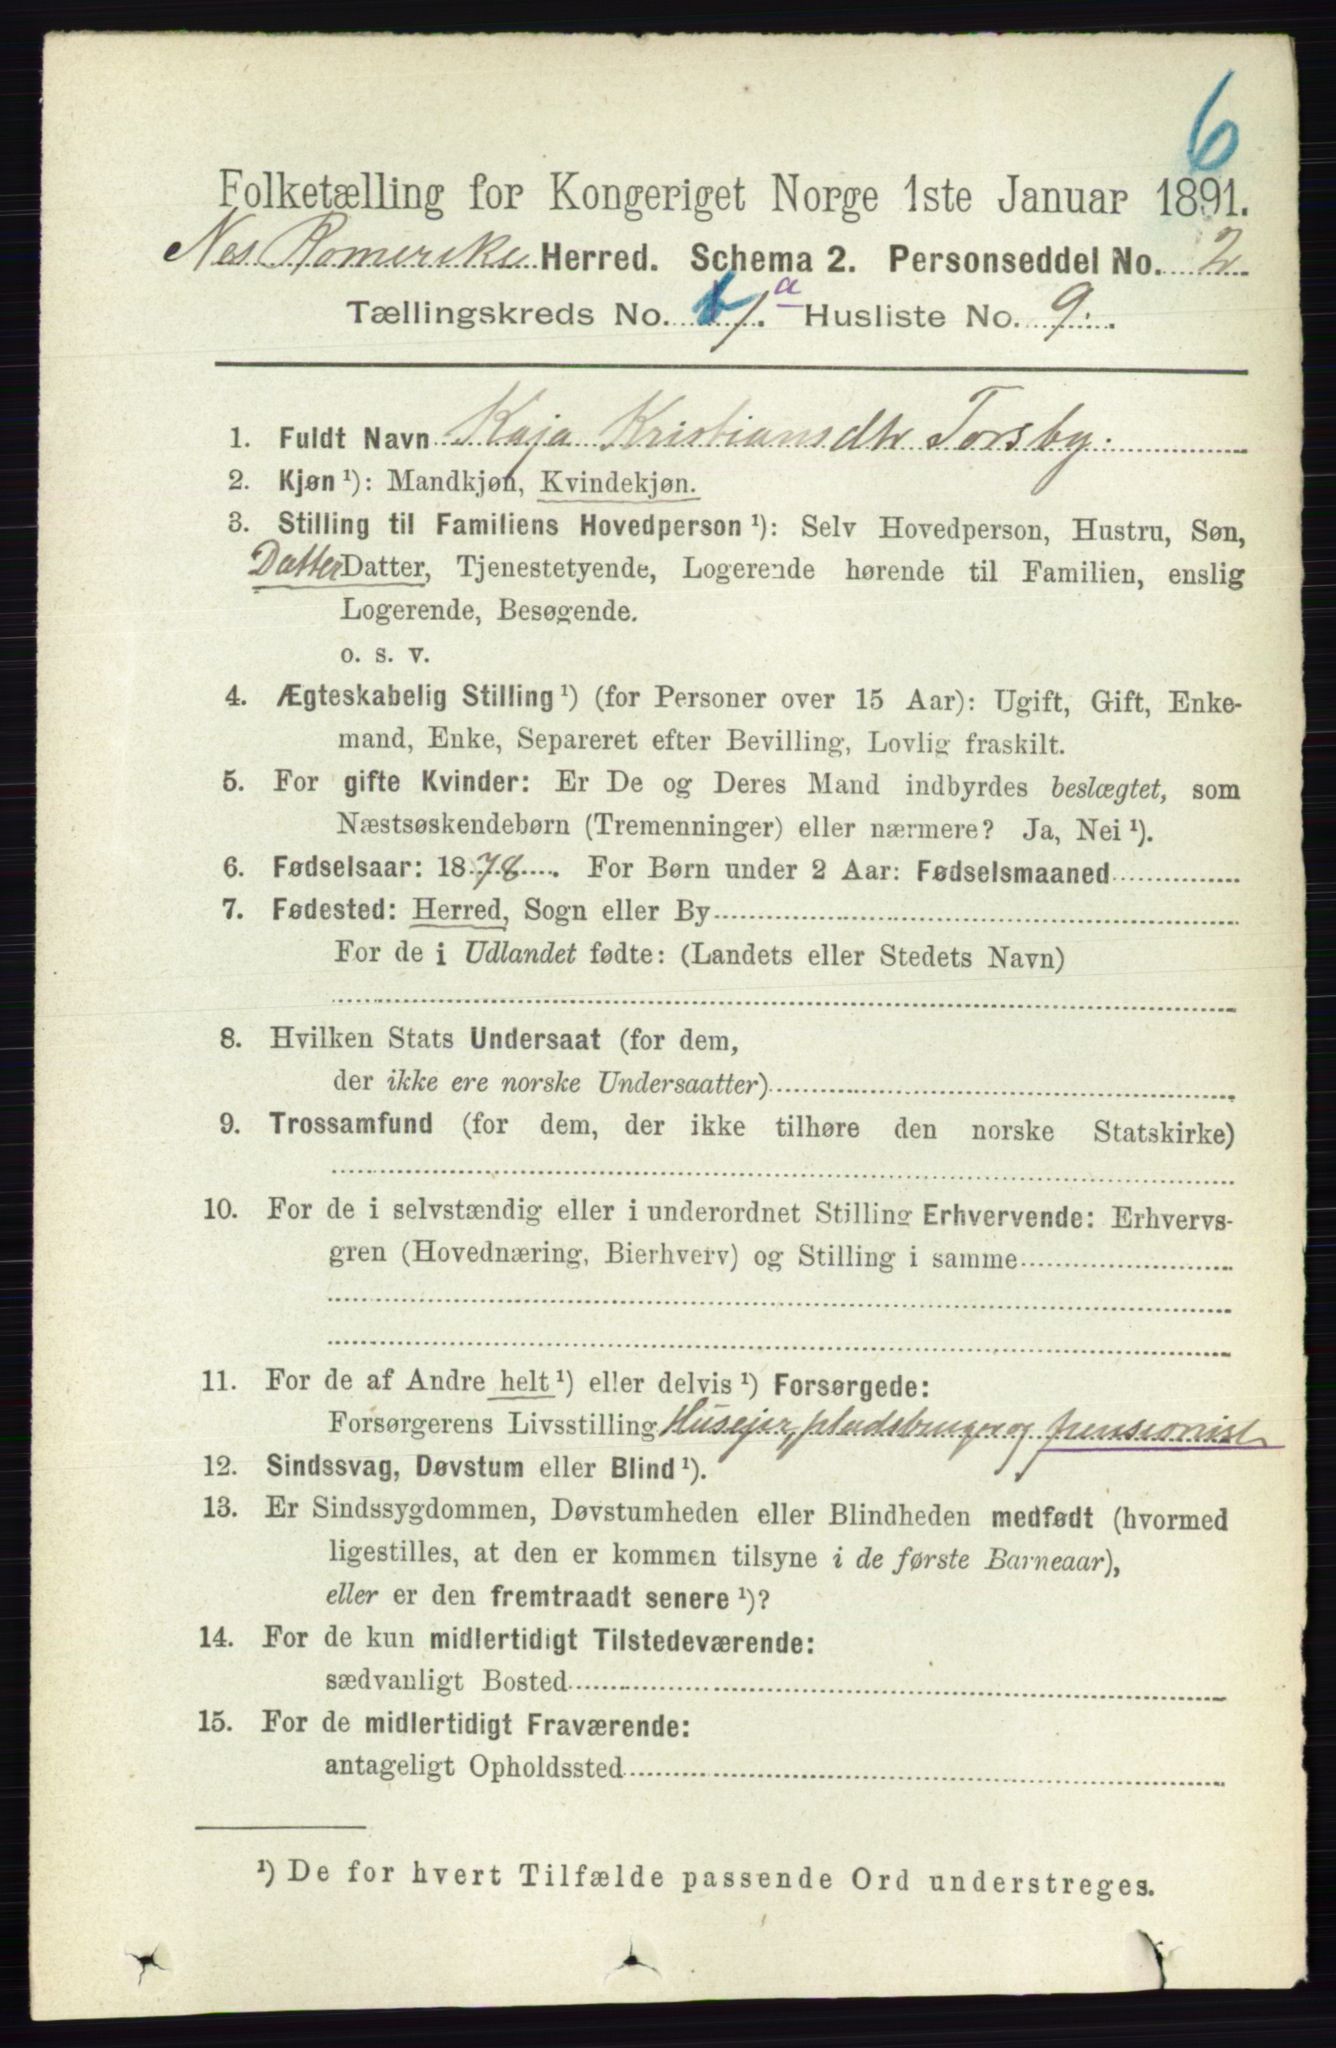 6
Folketælling for Kongeriget Norge 1ste Januar 1891.
Nes Romerike Herred. Schema 2. Personseddel No. 2
Tællingskreds No. 1.a Husliste No. 9.
1. Fuldt Navn Kaja Kristiansdtr Torsby.
2. Kjøn ¹): Mandkjøn, Kvindekjøn.
3. Stilling til Familiens Hovedperson ¹): Selv Hovedperson, Hustru, Søn,
Datter Datter, Tjenestetyende, Logerende hørende til Familien, enslig
Logerende, Besøgende.
o. s. v.
4. Ægteskabelig Stilling ¹) (for Personer over 15 Aar): Ugift, Gift, Enke-
mand, Enke, Separeret efter Bevilling, Lovlig fraskilt.
5. For gifte Kvinder: Er De og Deres Mand indbyrdes beslægtet, som
Næstsøskendebørn (Tremenninger) eller nærmere? Ja, Nei ¹).
6. Fødselsaar: 1878. For Børn under 2 Aar: Fødselsmaaned
7. Fødested: Herred, Sogn eller By
For de i Udlandet fødte: (Landets eller Stedets Navn)
8. Hvilken Stats Undersaat (for dem,
der ikke ere norske Undersaatter)
9. Trossamfund (for dem, der ikke tilhøre den norske Statskirke)
10. For de i selvstændig eller i underordnet Stilling Erhvervende: Erhvervs-
gren (Hovednæring, Bierhverv) og Stilling i samme
11. For de af Andre helt ¹) eller delvis ¹) Forsørgede:
Forsørgerens Livsstilling Husejer, pladsbruger og pensionist
12. Sindssvag, Døvstum eller Blind ¹).
13. Er Sindssygdommen, Døvstumheden eller Blindheden medfødt (hvormed
ligestilles, at den er kommen tilsyne i de første Barneaar),
eller er den fremtraadt senere ¹)?
14. For de kun midlertidigt Tilstedeværende:
sædvanligt Bosted
15. For de midlertidigt Fraværende:
antageligt Opholdssted
¹) De for hvert Tilfælde passende Ord understreges.